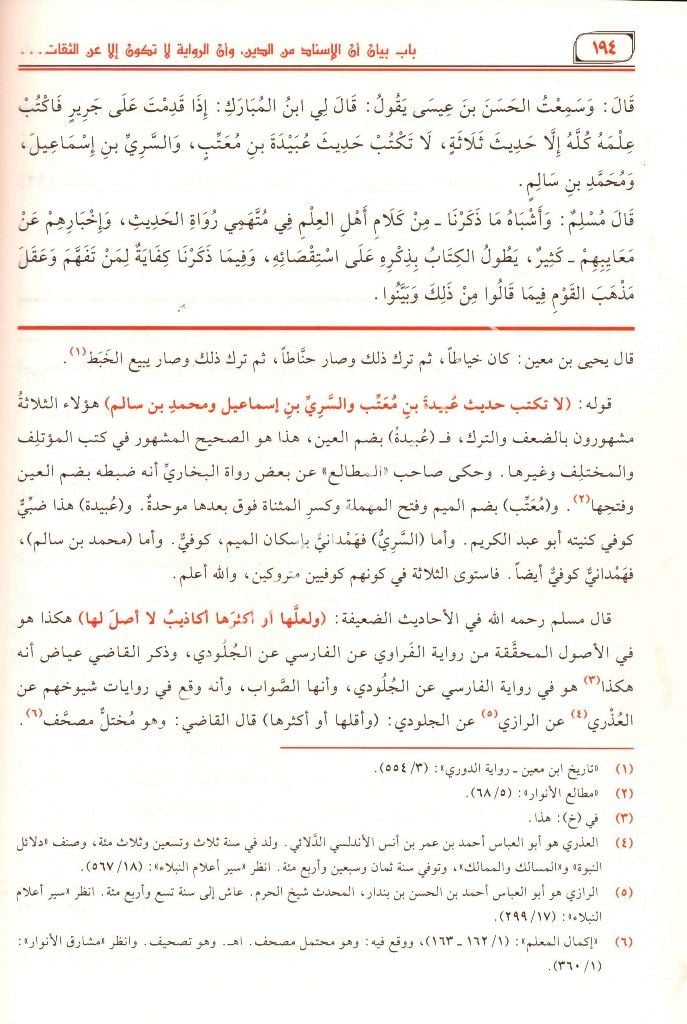 ١٩٤
باب بيان أن الإسناد من الدين، وأن الرواية لا تكون إلا عن الثقات...
قَالَ: وَسَمِعْتُ الحَسَنَ بنَ عِيسَى يَقُولُ: قَالَ لِي ابنُ المُبَارَكِ: إِذَا قَدِمْتَ عَلَى جَرِيرٍ فَاكْتُبْ
عِلْمَهُ كُلَّهُ إِلَّا حَدِيثَ ثَلَاثَةٍ، لَا تَكْتُبْ حَدِيثَ عُبَيْدَةَ بنِ مُعَتِّبٍ، وَالسَّرِيِّ بنِ إِسْمَاعِيلَ،
وَمُحَمَّدِ بنِ سَالِمٍ.
قَالَ مُسْلِمٌ: وَأَشْبَاهُ مَا ذَكَرْنَا ـ مِنْ كَلَامِ أَهْلِ العِلْمِ فِي مُتَّهَمِي رُوَاةِ الحَدِيثِ، وَإِخْبَارِهِمْ عَنْ
مَعَايِبِهِمْ ـ كَثِيرٌ، يَطُولُ الكِتَابُ بِذِكْرِهِ عَلَى اسْتِقْصَائِهِ، وَفِيمَا ذَكَرْنَا كِفَايَةٌ لِمَنْ تَفَهَّمَ وَعَقَلَ
مَذْهَبَ القَوْمِ فِيمَا قَالُوا مِنْ ذَلِكَ وَبَيَّنُوا.
قال يحيى بن معين: كان خياطاً، ثم ترك ذلك وصار حنَّاطاً، ثم ترك ذلك وصار يبيع الخَبَط(١).
قوله: (لا تكتب حديث عُبيدةَ بنِ مُعَتِّب والسَّرِيِّ بنِ إسماعيل ومحمدِ بن سالم) هؤلاء الثلاثةُ
مشهورون بالضعف والترك، فـ (عُبيدةُ) بضم العين، هذا هو الصحيح المشهور في كتب المؤتلِف
والمختلِف وغيرها. وحكى صاحب «المطالع» عن بعض رواة البخاريِّ أنه ضبطه بضم العين
وفتحِها(٢). و(مُعَتِّب) بضم الميم وفتح المهملة وكسرِ المثناة فوق بعدها موحدةٌ. و(عُبيدة) هذا ضبِّيٌّ
كوفي كنيته أبو عبد الكريم. وأما (السَّرِيُّ) فهَمْدانيٌّ بإسكان الميم، كوفيٌّ. وأما (محمد بن سالم)،
فهَمْدانيٌّ كوفيٌّ أيضاً. فاستوى الثلاثة في كونهم كوفيين متروكين، والله أعلم.
قال مسلم رحمه الله في الأحاديث الضعيفة: (ولعلَّها أو أكثرَها أكاذيبُ لا أصلَ لها) هكذا هو
في الأصول المحقَّقة من رواية الفَراوي عن الفارسي عن الجُلُودي، وذكر القاضي عياض أنه
هكذا(٣) هو في رواية الفارسي عن الجُلُودي، وأنها الصَّواب، وأنه وقع في روايات شيوخهم عن
العُذْري(٤) عن الرازي(٥) عن الجلودي: (وأقلها أو أكثرها) قال القاضي: وهو مُختلٌّ مصحَّف(٦).
(١) «تاريخ ابن معين ـ رواية الدوري»: (٣/ ٥٥٤).
(٢) «مطالع الأنوار»: (٥/ ٦٨).
(٣) في (خ): هذا.
(٤) العذري هو أبو العباس أحمد بن عمر بن أنس الأندلسي الدَّلائي. ولد في سنة ثلاث وتسعين وثلاث مئة، وصنف «دلائل
النبوة» و«المسالك والممالك»، وتوفي سنة ثمان وسبعين وأربع مئة. انظر «سير أعلام النبلاء»: (١٨/ ٥٦٧).
(٥) الرازي هو أبو العباس أحمد بن الحسن بن بندار، المحدث شيخ الحرم. عاش إلى سنة تسع وأربع مئة. انظر «سير أعلام
النبلاء»: (١٧/ ٢٩٩).
(٦) «إكمال المعلم»: (١/ ١٦٢ ـ ١٦٣)، ووقع فيه: وهو محتمل مصحف. اهـ. وهو تصحيف. وانظر «مشارق الأنوار»:
(١/ ٣٦٠).